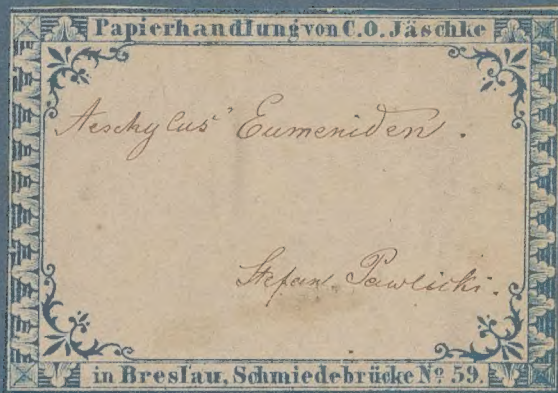 Papierhandlung von C.O. Jäschke
Aeschylus' Eumeniden.
Stefan Pawlicki.
in Breslau, Schmiedebrücke No. 59.